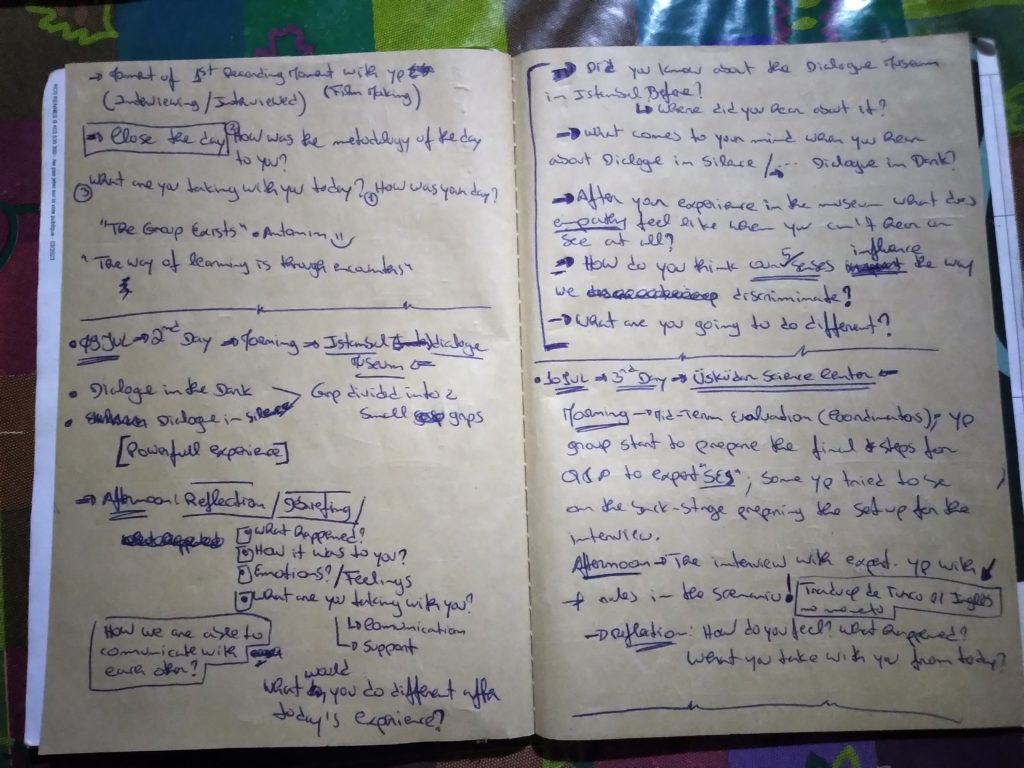 → Moment of 1st Recording Moment with yp
(Interviewing / Interviewed) (Film Making)
⇒ Close the day ② How was the metodology of the day
to you?
③ What are you taking with you today? ① How was your day?
"The Group Exists" • Antonim
"The way of learning is through encounters"
• 09 Jul → 2nd Day → Morning → Istanbul dialoge
Museum
• Dialoge in the Dark > Grop divided into 2
• Dialoge in silence small grops
[Powerfull experience]
⇒ Afternoon: Reflection / debriefing /
What happened?
How it was to you?
Emotions? / Feelings
What are you taking with you?
↳ Comunication
↳ Support
How we are able to
comunicate with
each other?
What would you do different after
today's experience?
→ Did you know about the Dialogue Museum
in Istanbul Before?
↳ Where did you hear about it?
→ What comes to your mind when you hear
about Dialoge in Silence / → ... Dialogue in Dark?
→ After your experience in the museum what does
empathy feel like when you can't hear or
see at all?
→ How do you think 5 senses influence the way
we discriminate?
→ What are you going to do different?
• 10 Jul → 3rd Day → Üsküdar Science Center
Morning → Mid-Term Evaluation (Coordinators); yp
group start to prepare the final steps for
Q&A to expert "SES"; some yp tried to be
on the back-stage preparing the setup for the
interview.
Afternoon → The interview with expert. yp with
+ rules in the scenario! Traduçã de Turco p/ Inglês
no momento
→ Reflection: How do you feel? What happened?
What you take with you from today?